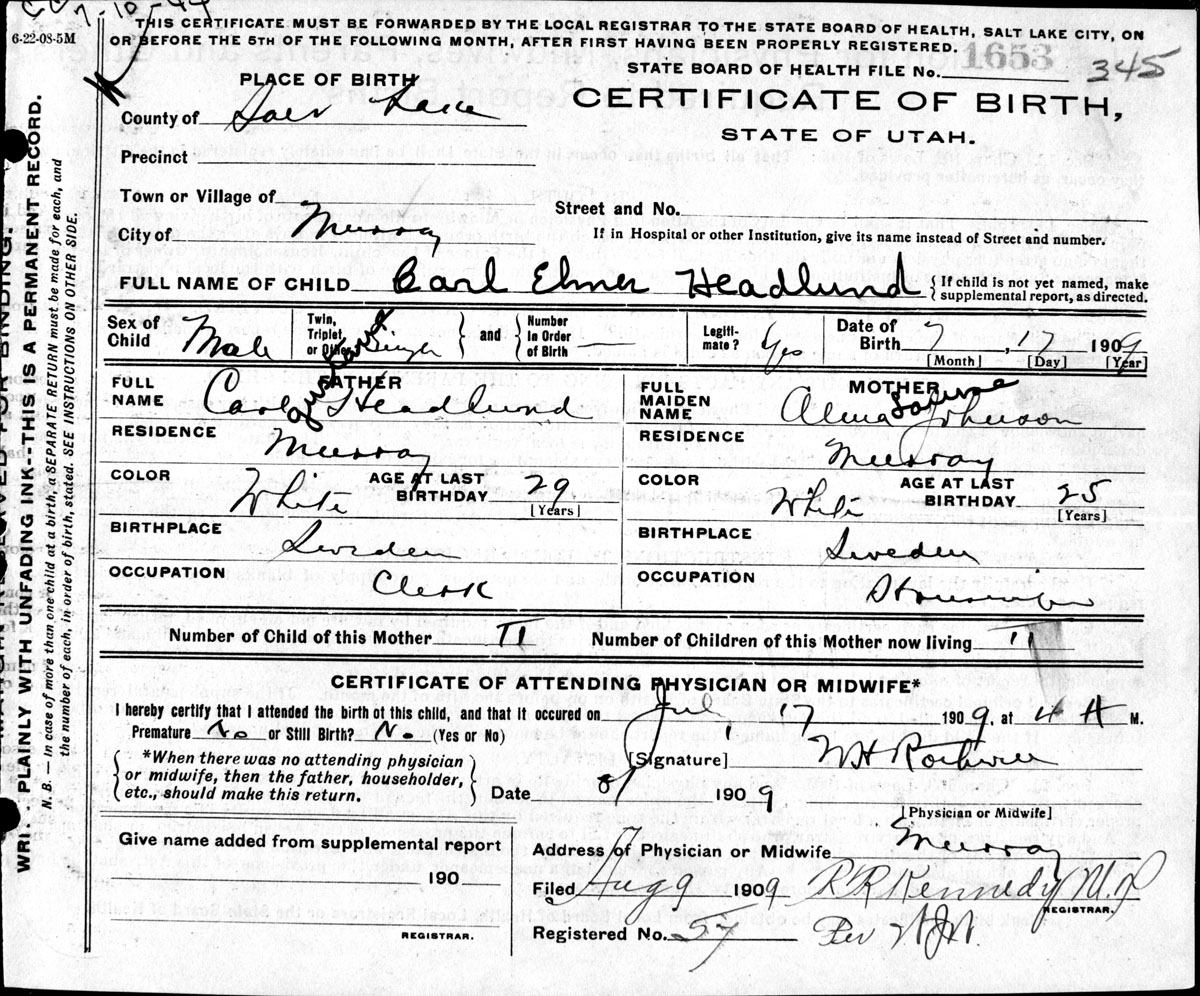 6-22-08-5M
THIS CERTIFICATE MUST BE FORWARDED BY THE LOCAL REGISTRAR TO THE STATE BOARD OF HEALTH, SALT LAKE CITY, ON
OR BEFORE THE 5TH OF THE FOLLOWING MONTH, AFTER FIRST HAVING BEEN PROPERLY REGISTERED.
STATE BOARD OF HEALTH FILE No. 1653 345
PLACE OF BIRTH
CERTIFICATE OF BIRTH,
STATE OF UTAH.
County of Salt Lake
Precinct
Town or Village of
Street and No.
City of Murray
If in Hospital or other Institution, give its name instead of Street and number.
FULL NAME OF CHILD Carl Elmer Headlund {If child is not yet named, make supplemental report, as directed.
Sex of Child Male Twin, Triplet, or Other Single and Number in Order of Birth — Legiti-mate? Yes Date of Birth 7, 17 1909
[Month] [Day] [Year]
FATHER
FULL NAME Carl Gustave Headlund
RESIDENCE Murray
COLOR White AGE AT LAST BIRTHDAY 29 [Years]
BIRTHPLACE Sweden
OCCUPATION Clerk
MOTHER
FULL MAIDEN NAME Alma Johnson
RESIDENCE Murray
COLOR White AGE AT LAST BIRTHDAY 25 [Years]
BIRTHPLACE Sweden
OCCUPATION
Number of Child of this Mother II Number of Children of this Mother now living II
CERTIFICATE OF ATTENDING PHYSICIAN OR MIDWIFE*
I hereby certify that I attended the birth of this child, and that it occured on Jul, 17 1909, at 4 A M.
Premature No or Still Birth? No (Yes or No)
*When there was no attending physician or midwife, then the father, householder, etc., should make this return.
[Signature] W H Rothwell
Date 8/ 1909
[Physician or Midwife]
Give name added from supplemental report
190
REGISTRAR.
Address of Physician or Midwife Murray
Filed Aug 9 1909 R R Kennedy M.D
REGISTRAR.
Registered No. 57 Per
WRITE PLAINLY WITH UNFADING INK--THIS IS A PERMANENT RECORD.
N. B. — In case of more than one child at a birth, a SEPARATE RETURN must be made for each, and
the number of each, in order of birth, stated. SEE INSTRUCTIONS ON OTHER SIDE.